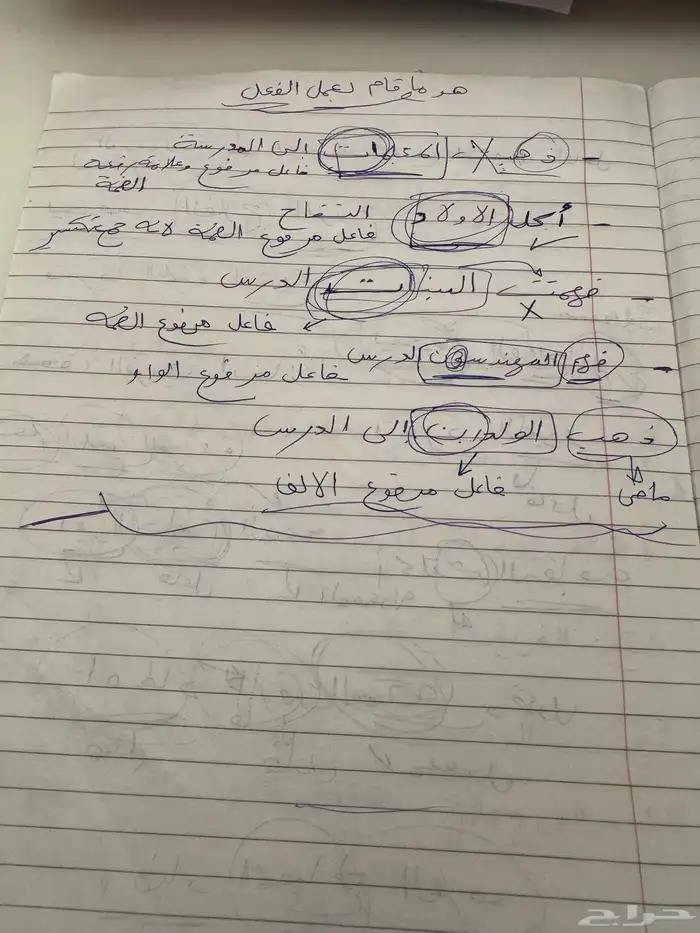 هو ما قام بعمل الفعل
- ذهبت المعلمات الى المدرسة
فاعل مرفوع وعلامة رفعه
الضمة
- أكل الاولاد التفاح
فاعل مرفوع الضمة لانه جمع تكسير
- فهمت البنات الدرس
فاعل مرفوع الضمه
- فهم المهندسون الدرس
فاعل مرفوع الواو
ذهب الولدان الى الدرس
ماضي
فاعل مرفوع الالف
حراج